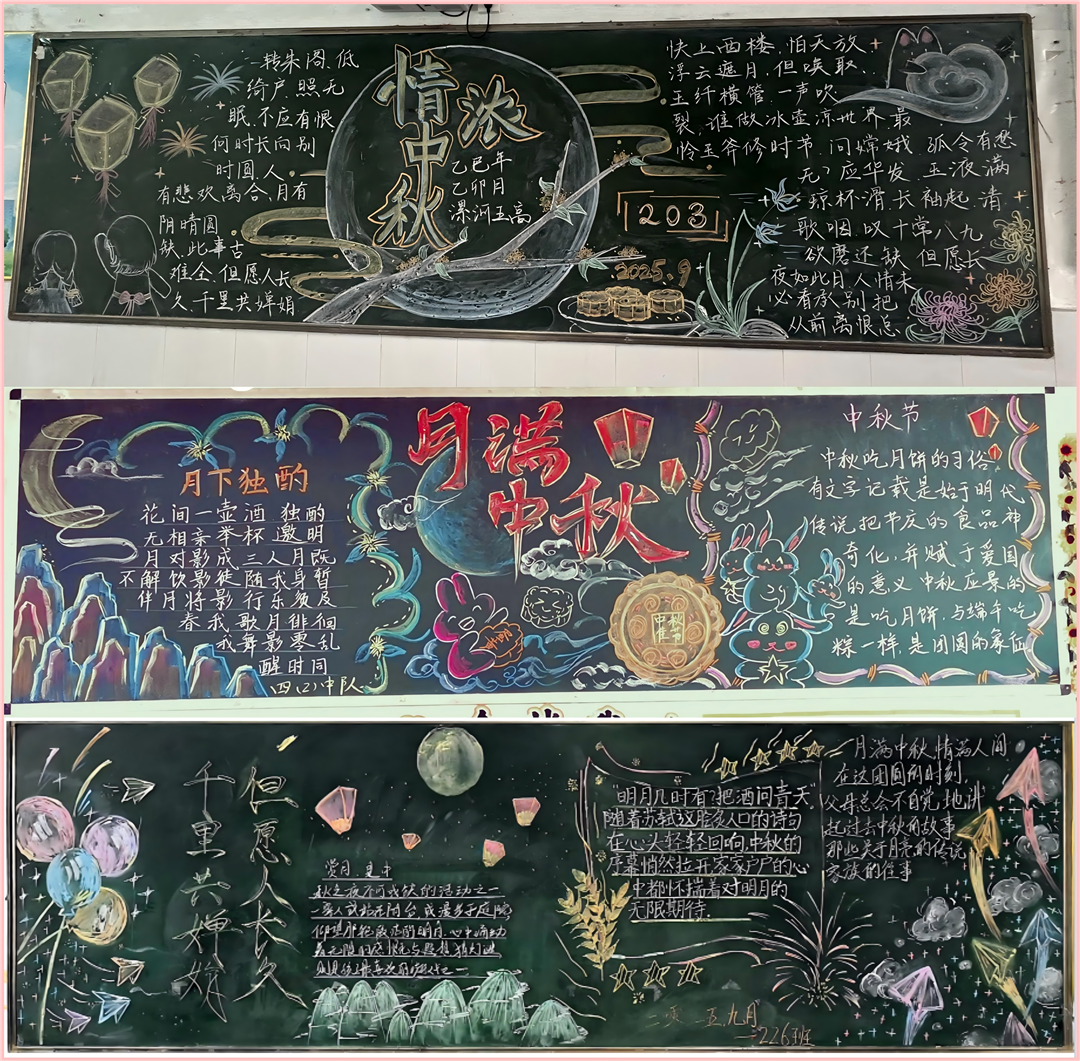 转朱阁,低
绮户,照无
眠.不应有恨
何时长向别
时圆.人
有悲欢离合,月有
阴晴圆
缺,此事古
难全.但愿人长
久,千里共婵娟
情浓
中秋
乙巳年
乙卯月
漯河五高
203
2025.9
快上西楼,怕天放
浮云遮月.但唤取、
玉纤横管,一声吹
裂.谁做冰壶凉世界,最
怜玉斧修时节.问嫦娥、孤令有愁
无?应华发.玉液满
琼杯滑,长袖起,清
歌咽.叹十常八九
欲磨还缺.但愿长
夜如此日,人情未
必看承别.把
从前离恨总
月下独酌
花间一壶酒 独酌
无相亲举杯 邀明
月对影成三人月既
不解饮影徒 随我身暂
伴月将影 行乐须及
春我 歌月徘徊
我舞影零乱
醒时同
四(2)中队
月满
中秋
中秋
佳节
中秋节
中秋吃月饼的习俗
有文字记载是始于明代
传说把节庆的食品神
奇化,并赋于爱国
的意义 中秋应景的
是吃月饼,与端午吃
粽一样,是团圆的象征
但愿人长久
千里共婵娟
赏月 是中
秋之夜不可或缺的活动之一
"明月几时有?把酒问青天"
随着苏轼这脍炙人口的诗句
在心头轻轻回响,中秋的
序幕悄然拉开家家户户的心
中都怀揣着对明月的
无限期待.
月满中秋,情满人间
在这团圆的时刻,
父母总会不自觉地讲
起过去中秋的故事
那些关于月亮的传说
家族的往事
二零二五,九月
2263班